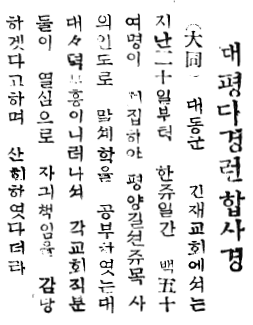 대평다경련합사경
(大同) 대동군 긴재교회에셔는
지난二十일부터 한쥬일간 百五十
여명이 회집하야 평양길션쥬목사
의인도로 말셰학을 공부하엿는대
대々뎍부흥이니러나셔 각교회직분
들이 열심으로 자긔책임을 감당
하겟다고하며 산회하엿다더라